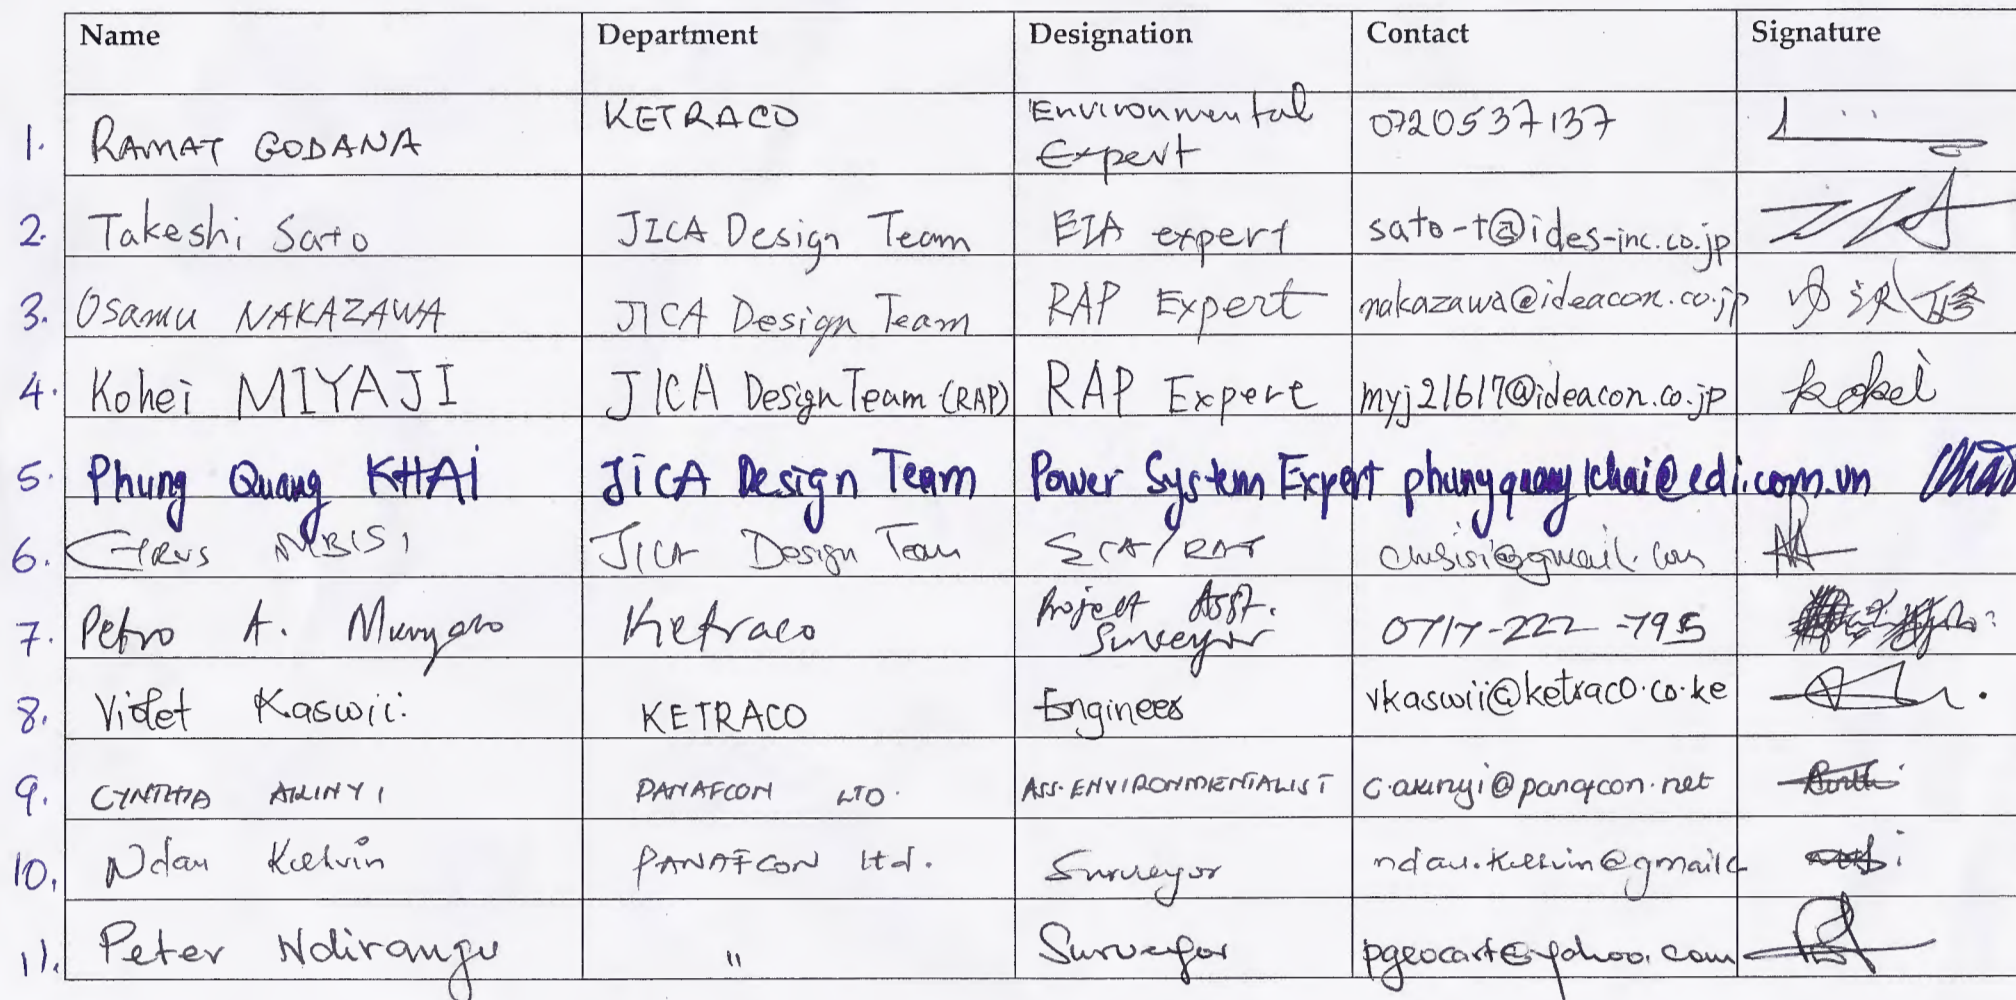 Name Department Designation Contact Signature
1. RAMAT GODANA KETRACO Environmental Expert 0720537137
2. Takeshi Sato JICA Design Team EIA expert sato-t@ides-inc.co.jp
3. Osamu NAKAZAWA JICA Design Team RAP Expert nakazawa@ideacon.co.jp
4. Kohei MIYAJI JICA Design Team (RAP) RAP Expert myj21617@ideacon.co.jp kohei
5. Phung Quang KHAI JICA Design Team Power System Expert phungquangkhai@edi.com.vn
6. MBISI JICA Design Team
7. Petro A. Ketraco Project Asst. Surveyor 0717-222-795
8. Violet Kaswii. KETRACO Engineer vkaswii@ketraco.co.ke
9. CYNTHIA AKINYI PANAFCON LTD. ASS. ENVIRONMENTALIST c.akinyi@panafcon.net
10. Ndau Kelvin PANAFCON Ltd. Surveyor
11. Peter Ndirangu " Surveyor pgeocart@yahoo.com